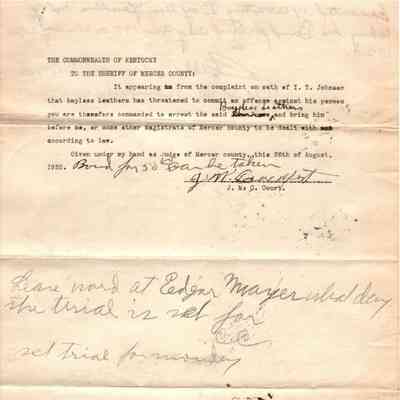 THE COMMONWEALTH OF KENTUCKY
TO THE SHERIFF OF MERCER COUNTY:
It appearing from the complaint on oath of I. T. Johnson
that Bayless Leathers has threatened to commit an offense against his person
Bayless Leathers
you are therefore commanded to arrest the said and bring him
before me, or some other magistrate of Mercer county to be dealt with
according to law.
Given under my hand as Judge of Mercer county, this 26th of August,
1930. Bond for 50 can be taken
J. W.
J. M. C. Court.
Leave word at Edgar Mayes what day
the trial is set for
set trial for monday